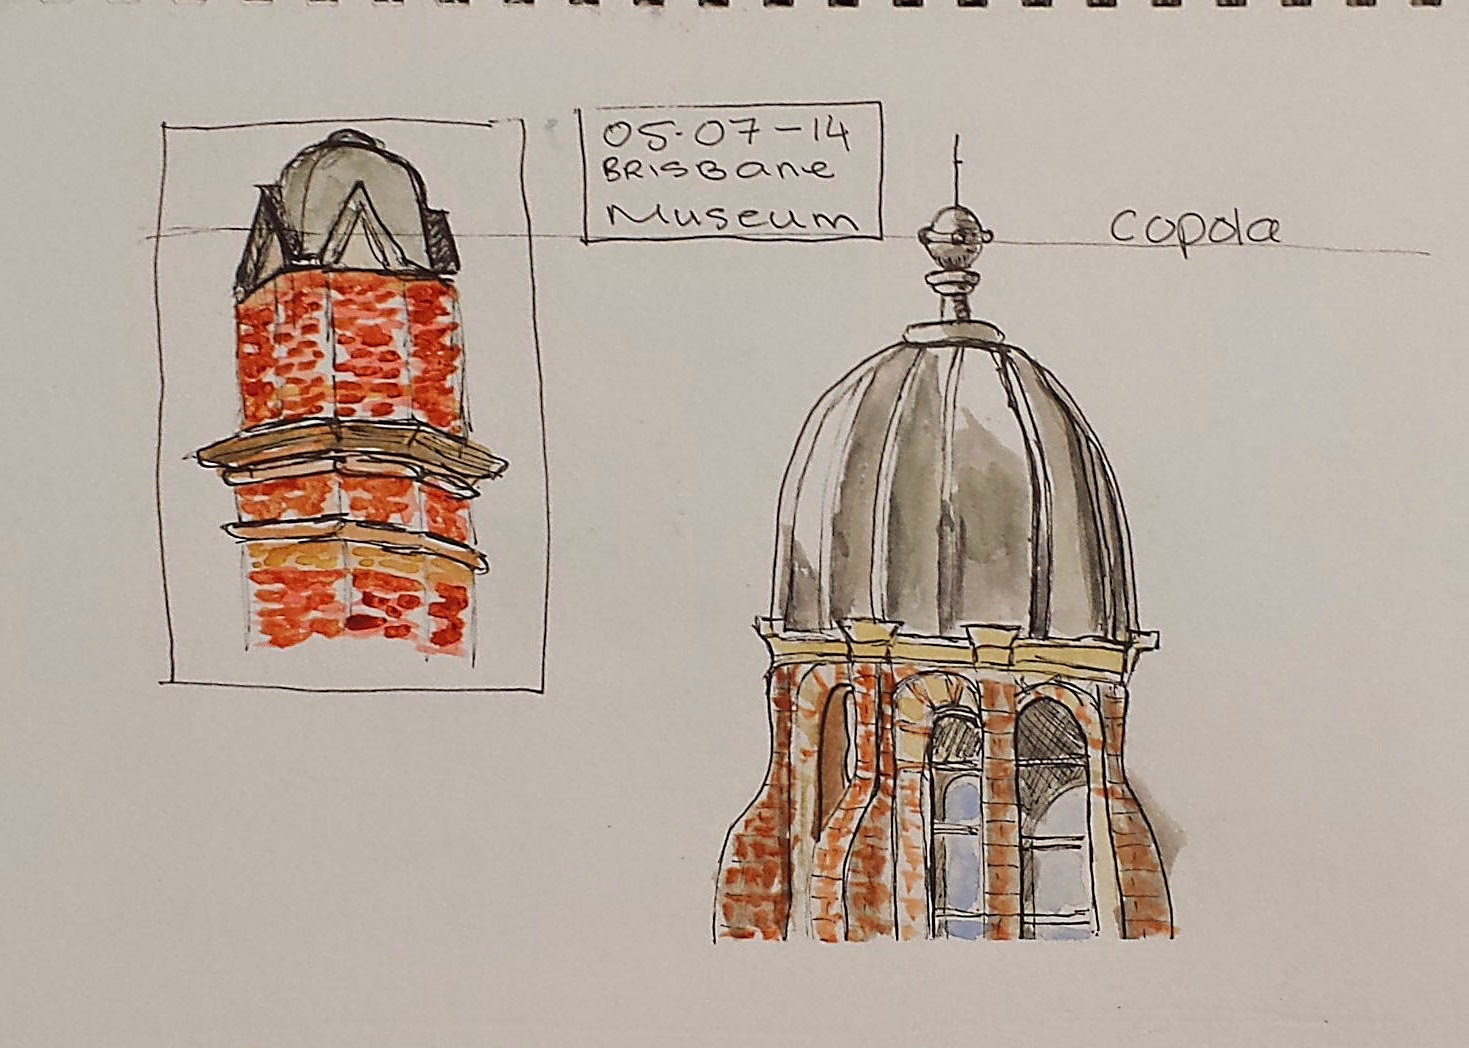 05.07-14
BRISBane
Museum
copola